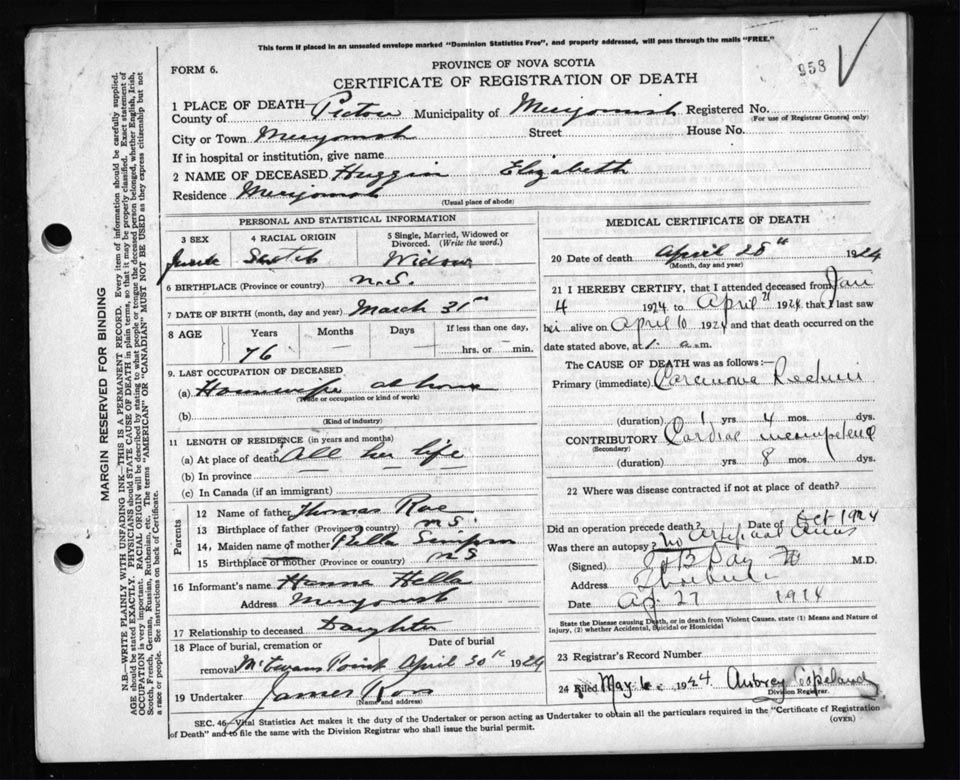 This form if placed in an unsealed envelope marked "Dominion Statistics Free", and properly addressed, will pass through the mails "FREE."
PROVINCE OF NOVA SCOTIA
FORM 6.
CERTIFICATE OF REGISTRATION OF DEATH
958
1 PLACE OF DEATH—
County of Pictou Municipality of Merigomish Registered No.
(For use of Registrar General only)
City or Town Merigomish Street House No.
If in hospital or institution, give name
2 NAME OF DECEASED Huggin Elizabeth
Residence Merigomish
(Usual place of abode)
PERSONAL AND STATISTICAL INFORMATION
3 SEX 4 RACIAL ORIGIN 5 Single, Married, Widowed or Divorced. (Write the word.)
Female Scotch Widow
6 BIRTHPLACE (Province or country) N.S.
7 DATE OF BIRTH (month, day and year) March 31st
8 AGE Years Months Days If less than one day,
76 hrs. or min.
9. LAST OCCUPATION OF DECEASED
(a) Housewife at home
(Trade or occupation or kind of work)
(b)
(Kind of industry)
11 LENGTH OF RESIDENCE (in years and months)
(a) At place of death All her life
(b) In province
(c) In Canada (if an immigrant)
Parents
12 Name of father Thomas Rae
13 Birthplace of father (Province or country) N.S.
14, Maiden name of mother Simpson
15 Birthplace of mother (Province or country) N S
16 Informant's name Hanna
Address Merigomish
17 Relationship to deceased Daughter
18 Place of burial, cremation or removal Date of burial
McEwans Point April 30th 1924
19 Undertaker James Ross
(Name and address)
MEDICAL CERTIFICATE OF DEATH
20 Date of death April 28th 1924
(Month, day and year)
21 I HEREBY CERTIFY, that I attended deceased from Jan
4 1924 to April 21 1924 that I last saw
her alive on April 10 1924 and that death occurred on the
date stated above, at 1 a.m.
The CAUSE OF DEATH was as follows:—
Primary (immediate) Carcinoma Rectum
(duration) 1 yrs 4 mos. dys.
CONTRIBUTORY Cardiac
(Secondary)
(duration) yrs 8 mos. dys.
22 Where was disease contracted if not at place of death?
Did an operation precede death? Date of Oct 1924
Was there an autopsy? No Artificial Anus
(Signed) Day M.D.
Address Thorburn
Date Ap. 27 1924
State the Disease causing Death, or in death from Violent Causes, state (1) Means and Nature of Injury, (2) whether Accidental, Suicidal or Homicidal
23 Registrar's Record Number
24 Filed May 6 1924. Aubrey Copeland
Division Registrar.
SEC. 46—Vital Statistics Act makes it the duty of the Undertaker or person acting as Undertaker to obtain all the particulars required in the "Certificate of Registration
of Death" and to file the same with the Division Registrar who shall issue the burial permit. (OVER)
MARGIN RESERVED FOR BINDING
N.B.—WRITE PLAINLY WITH UNFADING INK—THIS IS A PERMANENT RECORD. Every item of information should be carefully supplied.
AGE should be stated EXACTLY. PHYSICIANS should STATE CAUSE OF DEATH in plain terms, so that it may be properly classified. Exact statement of
OCCUPATION is very important. RACIAL ORIGIN will be described by stating to what people or tongue the deceased person belonged, whether English, Irish,
Scotch, French, German, Russian, Ruthenian, etc. The terms "AMERICAN" OR "CANADIAN" MUST NOT BE USED as they express citizenship but not
a race or people. See instructions on back of Certificate.